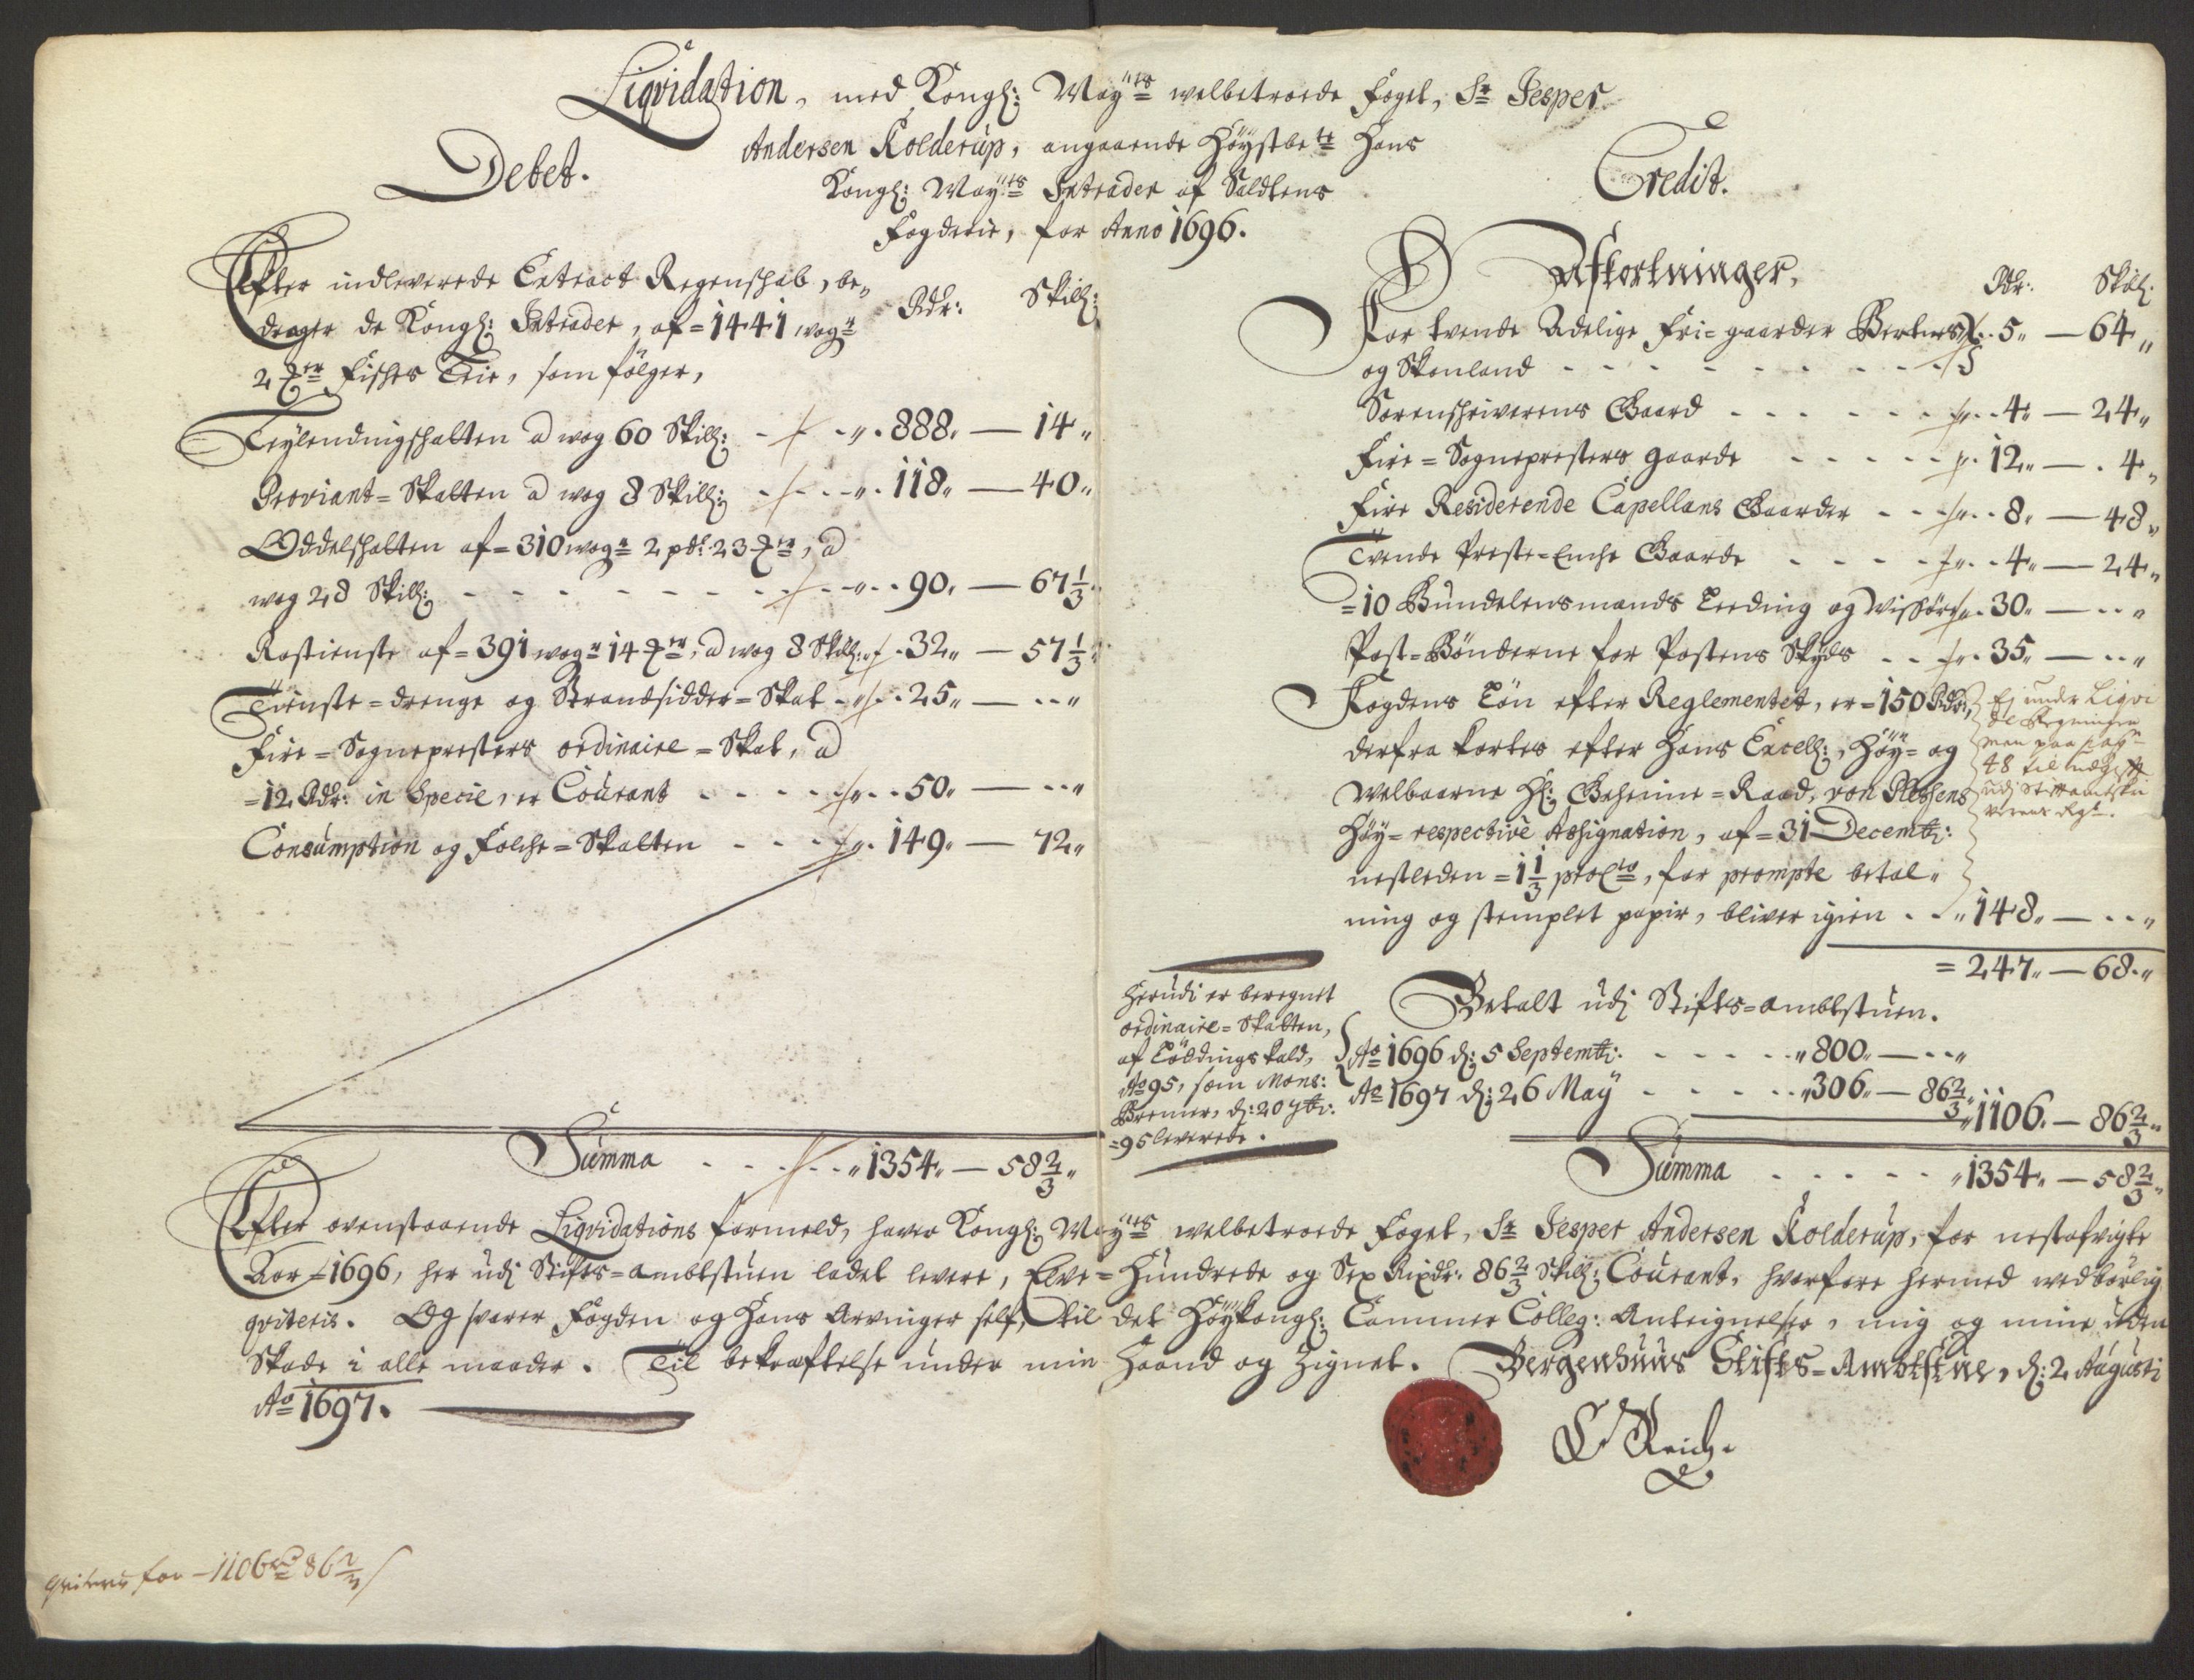 Liqvidation, med Kongl: May:ts welbetroede foget, Sr Jesper
Andersen Kolderup, angaaende Höystbe:te Hans
Kongl: May:ts Intrader af Saldtens
Fogderie, for Anno 1696.
Debet.
Efter indleverede Extract Regenschab, be„
drager de Kongl: Intrader, af = 1441 wog:r
2 ℔er fisches Leie, som fölger,
Rdr: Skill:
Leylendingschatten a wog 60 Skill: - - „ 888„ — 14„
Proviant = Skatten a wog 8 Skill: - - „ 118„ — 40„
Oddelschatten af = 310 wog:r 2 pd: 23 ℔er, a
wog 28 Skill: - - - - - „ 90„ — 67 1/3„
Rostienste af = 391 wog:r 14 ℔er, a wog 8 Skill: „ 32„ — 57 1/3„
Tienste = drenge og Strandsidder = Skat - „ 25„ — „
Fire = Sognepresters ordinaire = Skat, a
= 12 Rdr: in Specie, er Courant - - - „ 50„ — „
Consumption og Folche = Skatten - - - „ 149„ — 72„
Summa - - - „ 1354„ — 58 2/3„
Credit.
Afkortninger,
Rdr: Skill:
For tvende Adelige fri = gaarder
og Skonland - - - - - 5„ — 64„
Sorenschriverens Gaard - - - - „ 4„ — 24„
Fire = Sognepresters gaarde - - - - „ 12„ — 4„
Fire Residerende Capellans Gaarder - - „ 8„ — 48„
Tvende Preste = Enche Gaarde - - - - „ 4„ — 24„
= 10 Bundelensmands Leeding og Wissöre „ 30„ — „
Post = Bönderne for Postens Skyds - - „ 35„ — „
Fogdens Lön efter Reglementet, er = 150 Rdr,
derfra kortes efter Hans Excell:, Höy = og
Welbaarne Hr: Geheime = Raad, von Plessens
Höy = respective Assignation, af = 31 Decemb:
nestleden = 1 1/3 proC:to, for prompte betal„
ning og stemplet papir, bliver igien - - „ 148„ — „
Ej under Liqvi
de Regningen
men paa
48 til udgift
udj Stiftamtskri
verens Rg:
= 247„ — 68„
Betalt udj Stifts = ambtstuen.
Ao 1696 d: 5 Septemb: - - - - „ 800„ — „
Ao 1697 d: 26 May - - - - „ 306„ — 86 2/3„
„ 1106„ — 86 2/3„
Herudi er beregnet
ordinaire = Skatten,
af Löddings kald,
Ao 95, som Mons:
Bremer, d: 20 7br:
= 95 leverede.
Summa - - - - - „ 1354„ — 58 2/3„
Efter ovenstaaende Liqvidations formeld, haver Kongl: May:ts welbetroede foget, Sr Jesper Andersen Kolderup, for nestafvigte
Aar = 1696, her udj Stifts = ambtstuen ladet levere, Elve = Hundrede og Sex Rixdr: 86 2/3 Skill: Courant, hvorfore hermed wedbörlig
qviteris. Og svarer Fogden og Hans Arvinger self, til det Höykongl: Cammer Colleg: Anteignelser, mig og mine uden
Skade i alle maader. Til bekreftelse under min Haand og Zignet. Bergenhuus Stifts = Ambtstue, d: 2 Augusti
Ao 1697.
Reich.
qviteris for - 1106 rd 86 2/3